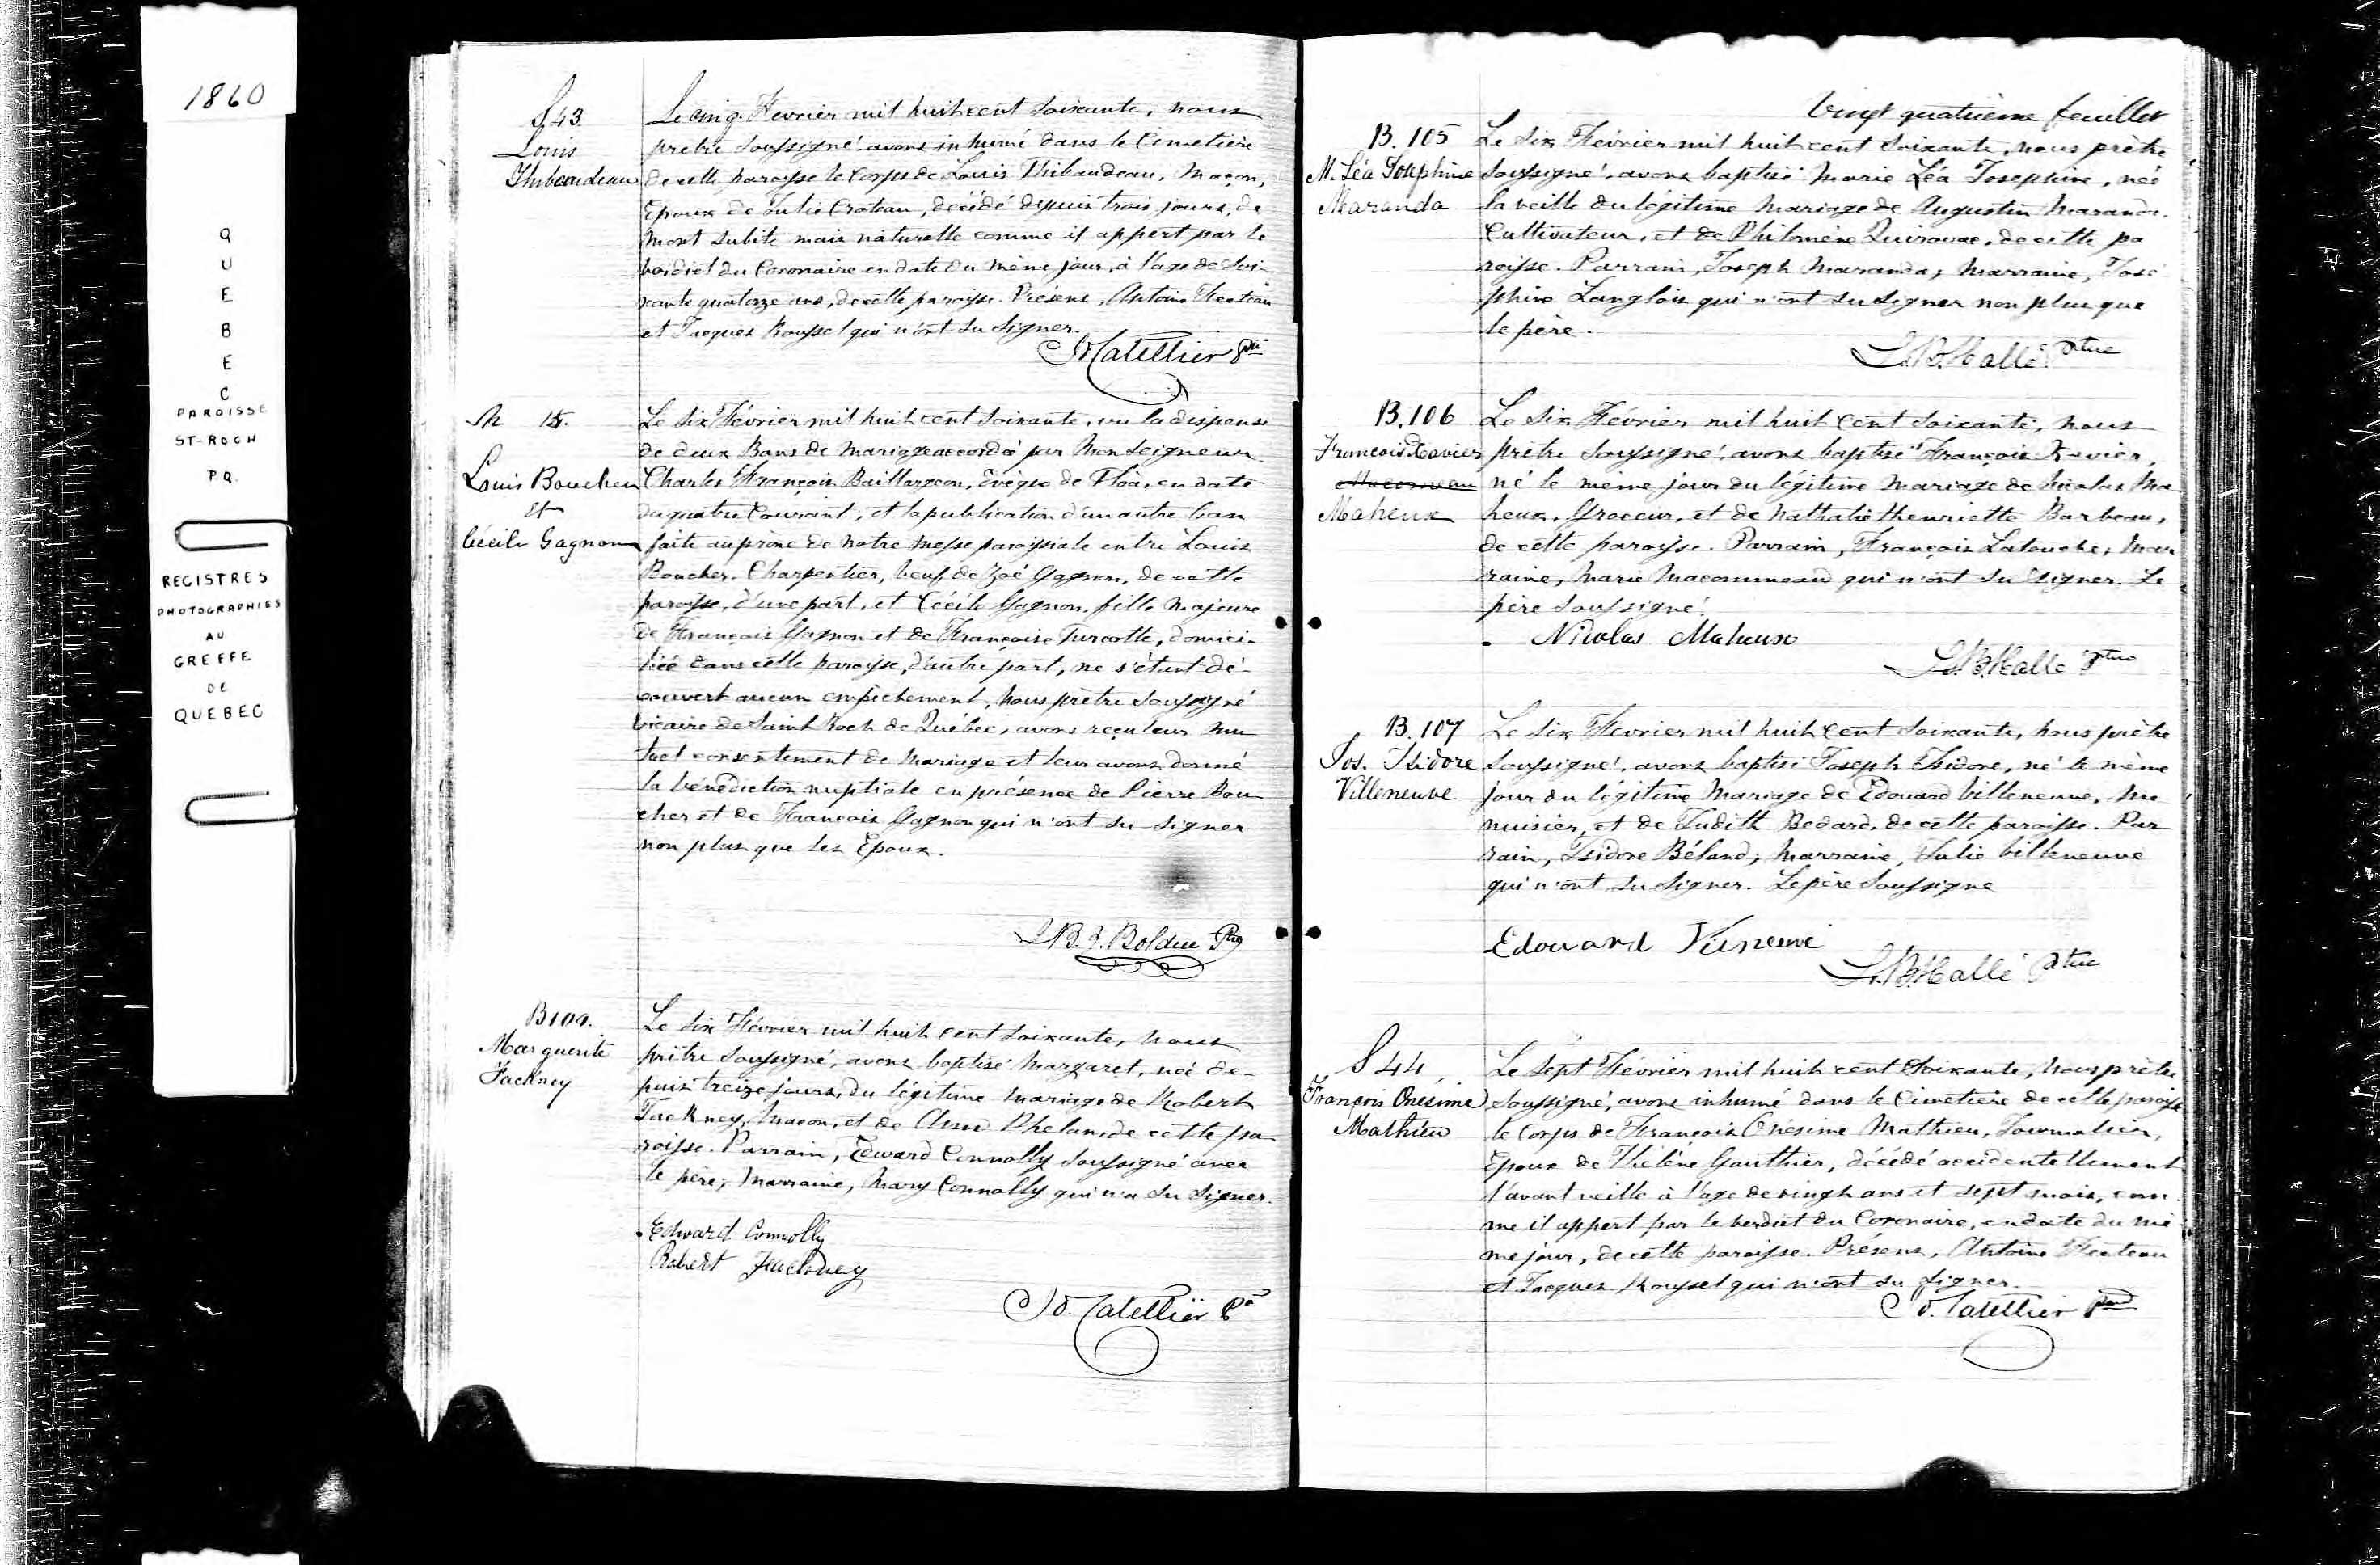 1860
QUEBEC
PAROISSE
ST-ROCH
P.Q.
REGISTRES
PHOTOGRAPHIES
AU
GREFFE
DE
QUEBEC
S 43.
Louis
Thibaudeau
Le cinq Fevrier mil huit cent soixante, nous
prêtre soussigné avons inhumé dans le Cimetière
de cette paroisse le Corps de Louis Thibaudeau, Maçon,
Epoux de Julie Croteau, décédé depuis trois jours, de
mort subite mais naturelle comme il appert par le
verdict du Coronaire en date du même jour, à l'age de soi-
xante quatorze ans, de cette paroisse. Présens, Antoine
et Jacques Roussel qui n'ont su signer.
Ptre
M 15.
Louis Boucher
et
Cécile Gagnon
Le six Février mil huit cent soixante, vu la dispense
de deux Bans de mariage accordée par Monseigneur
Charles François Baillargeon, Évêque de Tloa, en date
du quatre Courant, et la publication d'un autre ban
faite au prone de notre Messe paroissiale entre Louis
Boucher, Charpentier, veuf de Zoé Gagnon, de cette
paroisse, d'une part, et Cécile Gagnon, fille majeure
de François Gagnon et de Françoise Turcotte, domici-
liée dans cette paroisse, d'autre part, ne s'étant dé-
couvert aucun empêchement, nous prêtre soussigné
vicaire de Saint Roch de Québec, avons reçu leur mu
tuel consentement de mariage et leur avons donné
la bénédiction nuptiale en présence de Pierre Bou
cher et de François Gagnon qui n'ont su signer
non plus que les Epoux.
Bolduc Ptre
B 104.
Marguerite
Fackney
Le six Février mil huit cent soixante, nous
prêtre soussigné, avons baptisé Margaret, née de-
puis treize jours, du légitime mariage de Robert
Fackney, Macon, et de Ann Phelan, de cette pa
roisse. Parrain, Edward Connolly soussigné avec
le père; Marraine, Mary Connolly qui n'a su signer.
Edward Connolly
Robert Fackney
Ptre
Vingt quatrième feuillet
B. 105
M. Léa Josephine
Maranda
Le six Février mil huit cent soixante, nous prêtre
soussigné, avons baptisé Marie Léa Josephine, née
la veille du légitime mariage de Augustin Maranda
Cultivateur, et de Philomène de cette pa
roisse. Parrain, Joseph Maranda; Marraine, José
phine Langlois qui n'ont su signer non plus que
le père.
L.B. Hallé Ptre
B. 106
François Xavier
Maheux
Le six Février mil huit cent soixante, nous
prêtre soussigné, avons baptisé François Xavier,
né le même jour du légitime mariage de Nicolas Ma
heux, Graveur, et de Nathalie Henriette Barbeau,
de cette paroisse. Parrain, François Latouche; Mar
raine, Marie qui n'ont su signer. Le
père soussigné.
Nicolas Maheux
L.B. Hallé Ptre
B. 107
Jos. Isidore
Villeneuve
Le six Fevrier mil huit cent soixante, nous prêtre
soussigné, avons baptisé Joseph Isidore, né le même
jour du légitime mariage de Edouard Villeneuve, Me
nuisier, et de Judith Bedard, de cette paroisse. Par
rain, Isidore Béland; Marraine, Julie Villeneuve
qui n'ont su signer. Le père soussigné
Edouard
L.B. Hallé Ptre
S 44
François Onesime
Mathieu
Le sept Février mil huit cent soixante, nous prêtre
soussigné, avons inhumé dans le Cimetière de cette paroisse
le Corps de François Onesime Mathieu, Journalier,
Epoux de Hélène Gauthier, décédé accidentellement
l'avant veille à l'age de vingt ans et sept mois, com
me il appert par le verdict du Coronaire, en date du mê
me jour, de cette paroisse. Présens, Antoine
et Jacques Roussel qui n'ont su signer.
Ptre